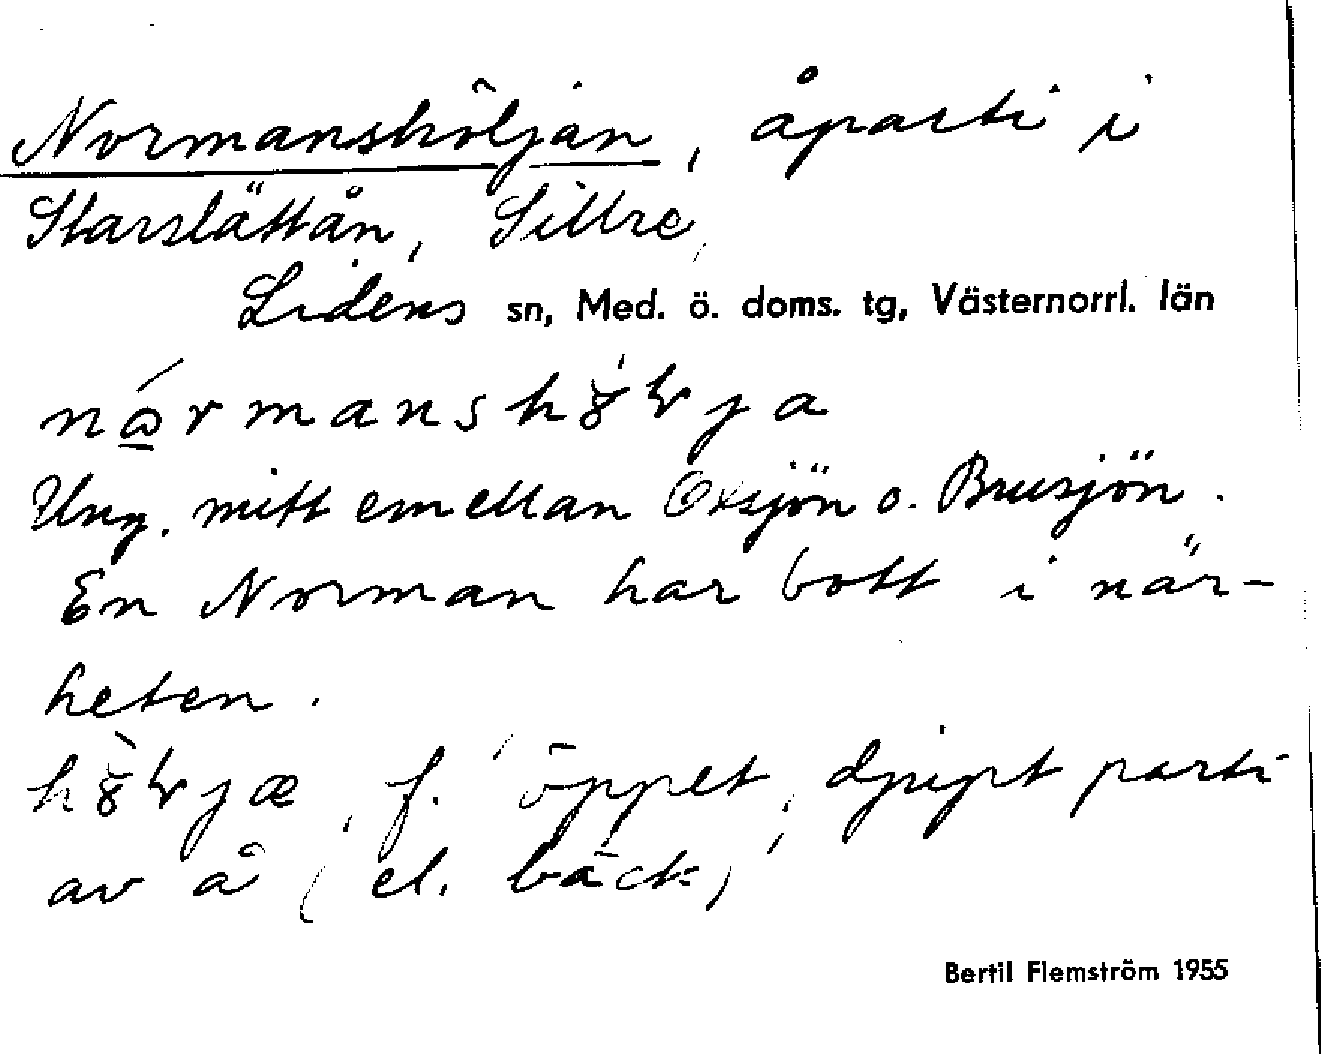 Normanshöljan, åparti i
Starslättån, Sillre,
Lidens sn, Med. ö. doms. tg, Västernorrl. län
Ung. mitt emellan Oxsjön o. Brusjön.
En Norman har bott i när-
heten.
f. öppet, djupt parti
av å (el. bäck)
Bertil Flemström 1955